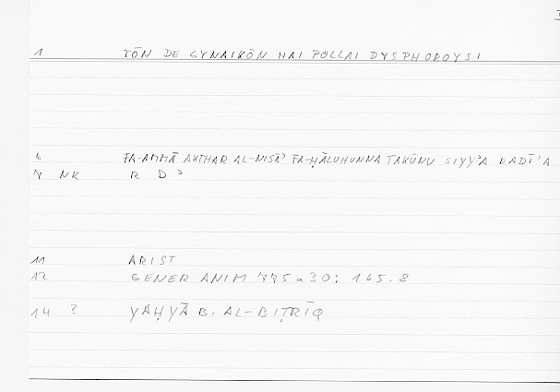 1 TŌN DE GYNAIKŌN HAI POLLAI DYSPHOROYSI
6 FA-AMMĀ AKTHAR AL-NISĀʾ FA-ḤĀLUHUNNA TAKŪNU SIYYʾA RADĪʾA
7 NK R D ʾ
11 ARIST
12 GENER ANIM 775 a 30; 165.8
14 3 YAḤYĀ B. AL-BIṬRĪQ